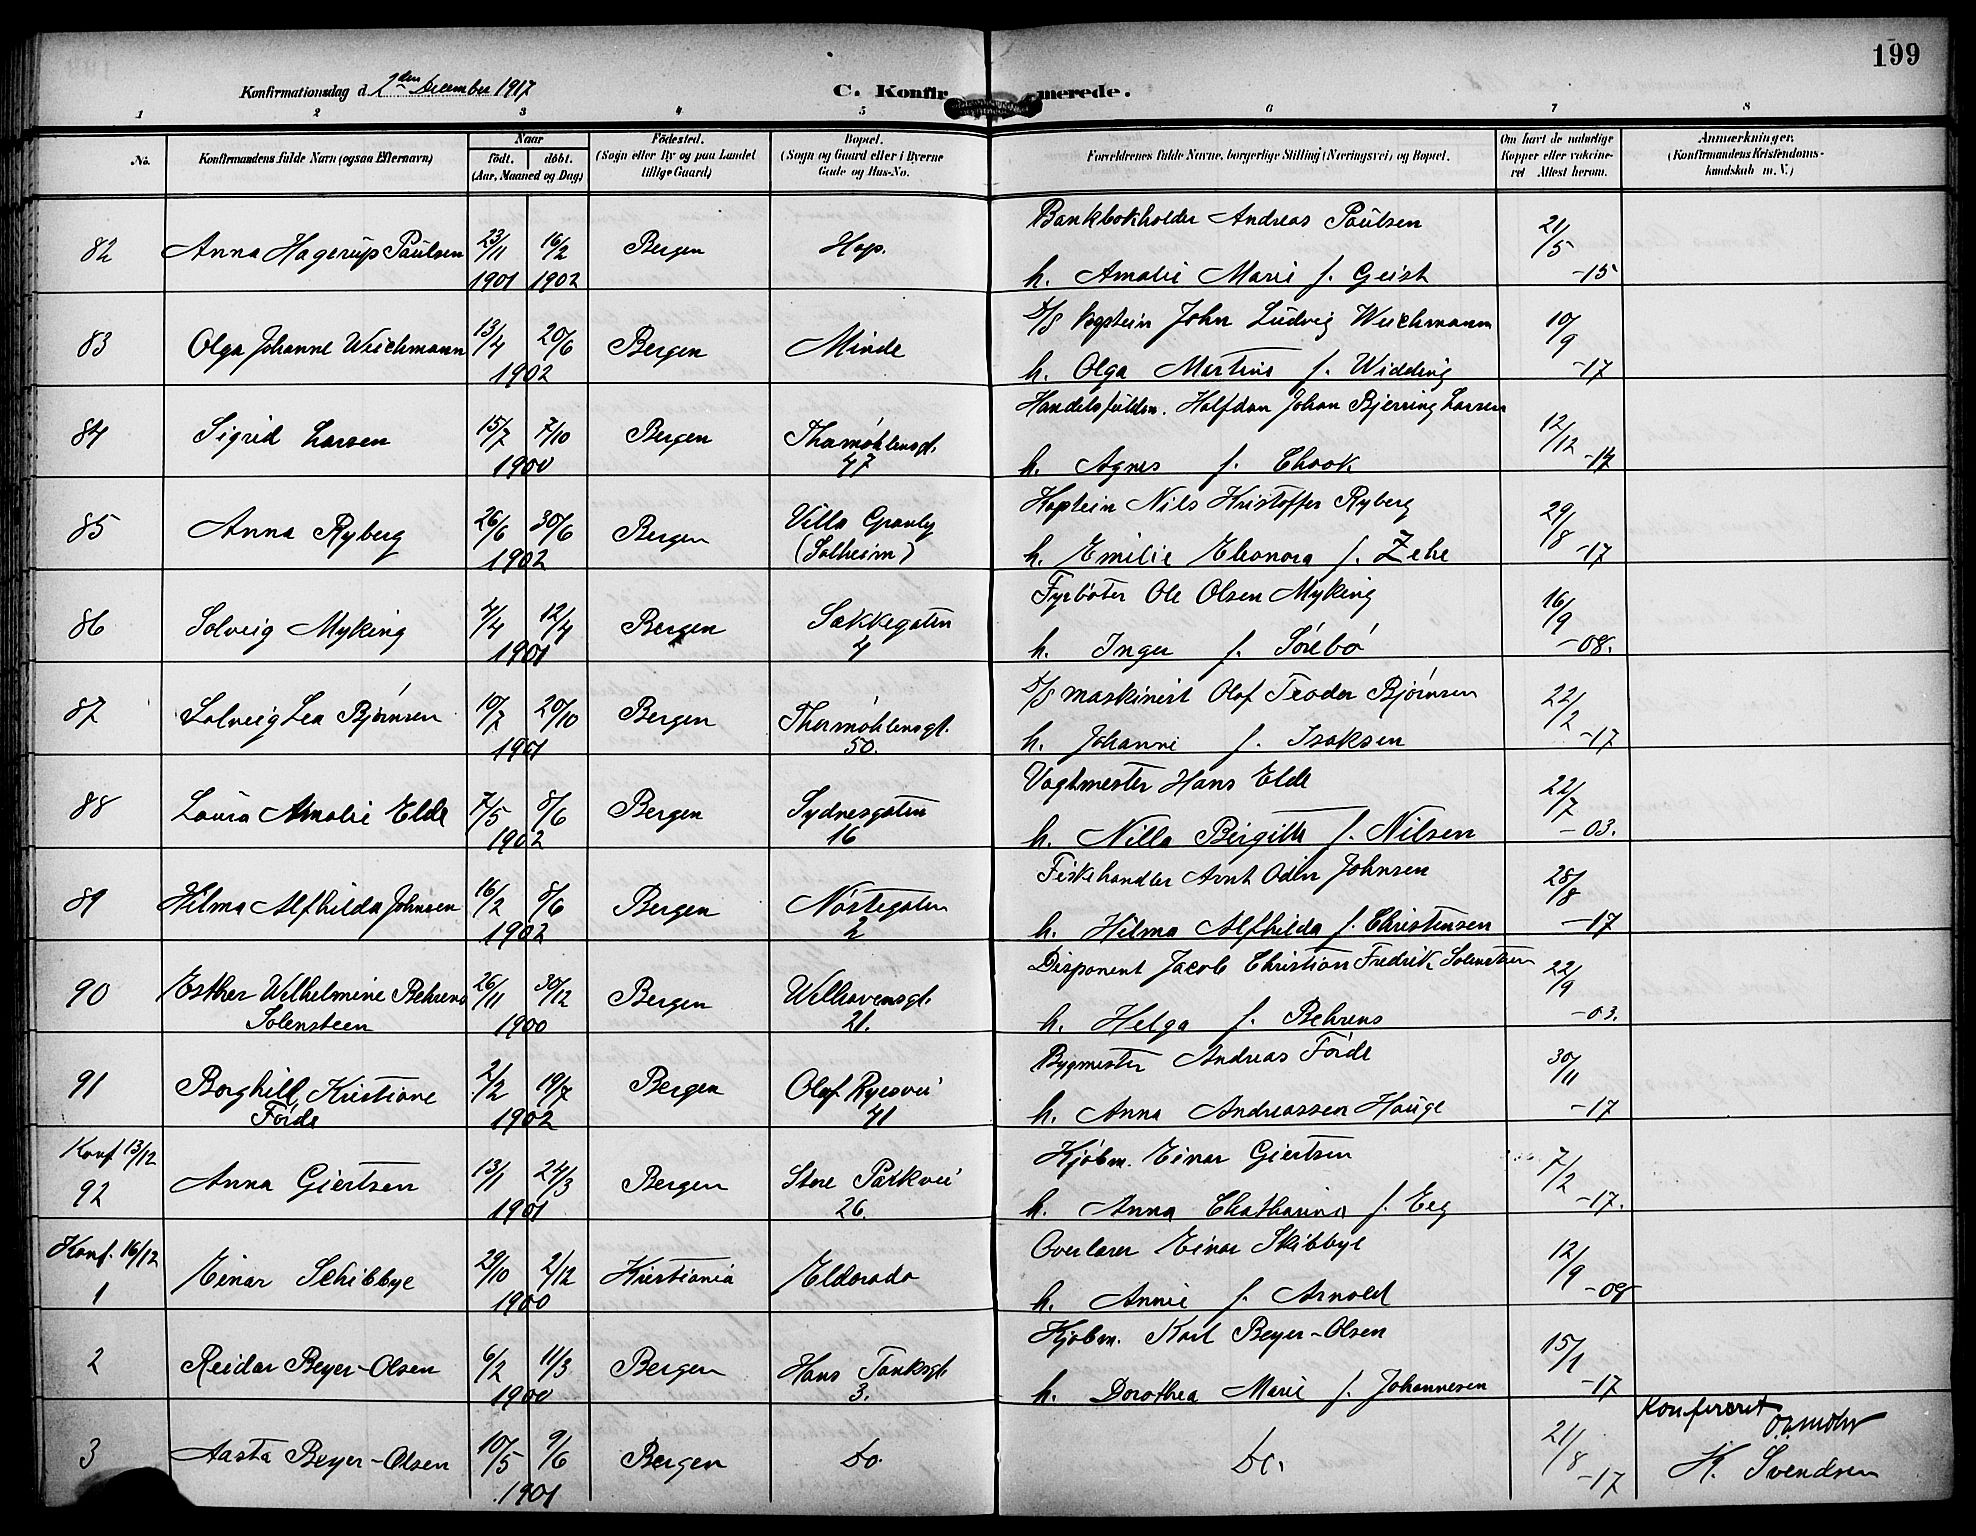 199
Konfirmationsdag d. 2den December 1917
C. Konfirmerede.
1 2 3 4 5 6 7 8
No. Konfirmandens fulde Navn (ogsaa Efternavn) Naar Födested. Bopæl. Forældrenes fulde Navne, borgerlige Stilling (Næringsvei) og Bopæl. Om havt de naturlige Anmærkninger.
födt. döbt. (Sogn eller By og paa Landet (Sogn og Gaard eller i Byerne Kopper eller vakcine- (Konfirmandens Kristendoms-
(Aar, Maaned og Dag) tillige Gaard) Gade og Hus-No. ret Attest herom. kundskab m. V.)
Bankbokholder Andreas Paulsen
82 Anna Hagerup Paulsen 23/11 16/2 Bergen Hop. 21/5
1901 1902 h. Amalie Marie f. Geist -15
D/S Kaptein John Ludvig Weichmann
83 Olga Johanne Weichmann 13/4 20/6 Bergen Minde 10/9
1902 h. Olga Martine f. Widding -17
Handelsfuldm. Halfdan Johan Bjerring Larsen
84 Sigrid Larsen 15/7 7/10 Bergen Thormøhlensgt. 12/12
1900 47 h. Agnes f. Chook -14
Kaptein Nils Kristoffer Ryberg
85 Anna Ryberg 26/6 30/6 Bergen Villa Granly 29/8
1902 (Solheim) h. Emilie Eleonora f. Zehe -17
Fyrbøter Ole Olsen Myking
86 Solveig Myking 4/4 12/4 Bergen Sækkegaten 16/9
1901 4 h. Inger f. Sörebö -08.
D/S Maskinist Olaf Teodor Bjørnsen
87 Solveig Lea Bjørnsen 10/7 20/10 Bergen Thormøhlensgt. 22/2
1901 50. h. Johanne f. Isaksen -17
Vagtmester Hans Elde
88 Laura Amalie Elde 7/5 8/6 Bergen Sydnesgaten 22/7
1902 16 h. Nilla Birgitte f. Nilsen -03.
Fiskehandler Arnt Odin Johnsen
89 Hilma Alfhilda Johnsen 16/2 8/6 Bergen Nøstegaten 28/8
1902 2 h. Hilma Alfhilda f. Christensen -17
Disponent Jacob Christian Fredrik Solensteen
90 Esther Wilhelmine Behrens 26/11 30/12 Bergen Welhavensgt. 22/9
Solensteen 1900 21. h. Helga f. Behrens -03.
Bygmester Andreas Förde
91 Borghild Kristiane 2/2 19/7 Bergen Olaf Ryesvei 30/11
Förde 1902 41 h. Anna Andreassen Hauge -17
Konf 13/12 Kjøbm. Einar Giertsen
92 Anna Giertsen 13/1 24/3 Bergen Store Parkvei 7/2
1901 26. h. Anna Chatharina f. Eeg -17.
Konf. 16/12 Overlærer Einar Skibbye
1 Einar Schibbye 29/10 2/12 Kristiania Eldorado 12/9
1900 h. Annie f. Arnold -08
Kjøbm. Karl Beyer-Olsen
2 Reidar Beyer-Olsen 6/2 11/3 Bergen Hans Tanksgt. 15/1
1900 3. h. Dorothea Marie f. Johannesen -17
Konfereret
3 Aasta Beyer-Olsen 10/5 9/6 Bergen Do. Do. 21/8
1901 -17 K. Svendsen